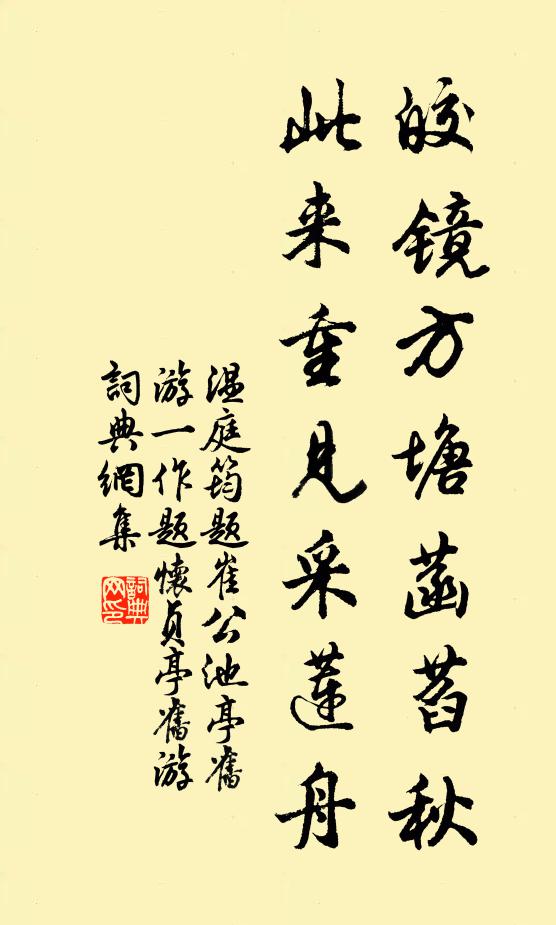 皎镜方塘菡萏秋
此来重见采莲舟
温庭筠题崔公池亭旧
游一作题懷贞亭旧游
詞典網集
詞典
网印